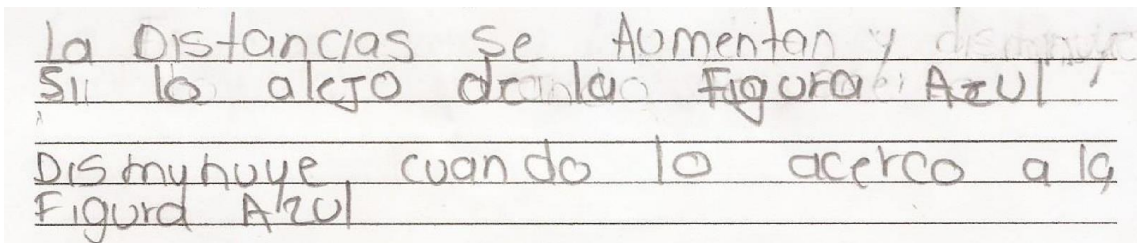 la Distancias se Aumentan y disminuye
Si lo alejo de la Figura Azul
Dismynuye cuando lo acerco a la
Figura Azul